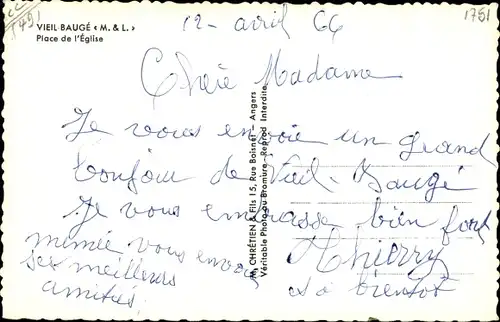 VIEIL BAUGÉ « M. & L. »
Place de l'Église
12 avril 66
1751
Chère Madame
Je vous envoie un grand
bonjour de Vieil-Baugé
Je vous embrasse bien fort
Thierry
et à bientot
mimie vous envoie
ses meilleurs
amitiés.
CHRÉTIEN & Fils 15, Rue Boisnet - Angers
Véritable Photo au Bromure - Reprod Interdite